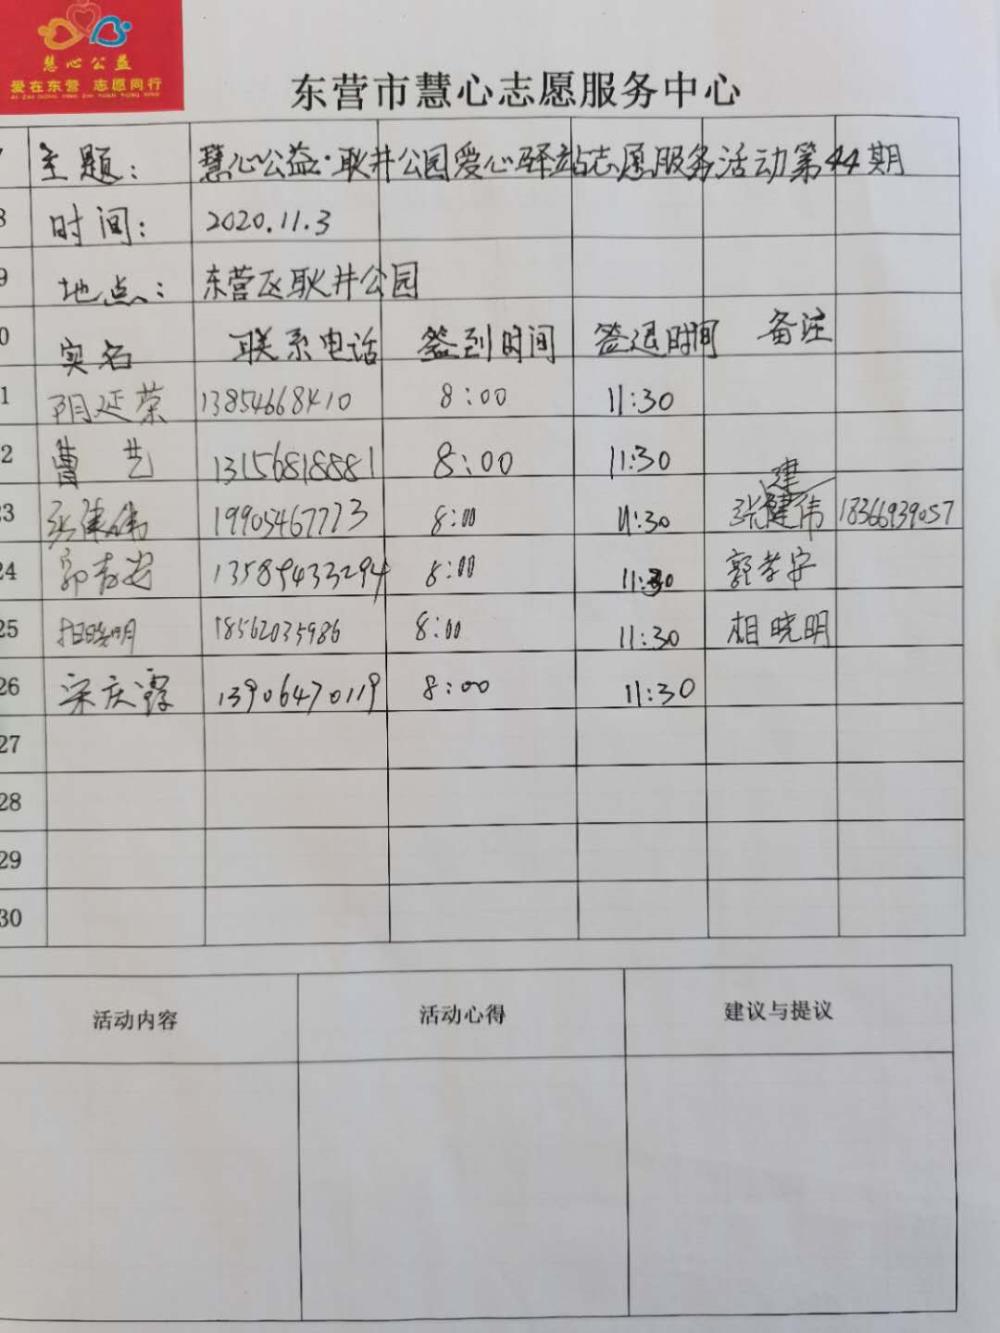 慧心公益
爱在东营 志愿同行
东营市慧心志愿服务中心
主题: 慧心公益·耿井公园爱心驿站志愿服务活动第44期
8 时间: 2020.11.3
9 地点: 东营区耿井公园
0 实名 联系电话 签到时间 签退时间 备注
1 阴延荣 13854668410 8:00 11:30
2 曹艺 13156818881 8:00 11:30
建
23 张健伟 19905467773 8:00 11:30 张健伟 18366939057
24 郭孝安 13589433294 8:00 11:30 郭孝安
25 相晓明 18562035986 8:00 11:30 相晓明
26 宋庆霞 13906470119 8:00 11:30
27
28
29
30
活动内容 活动心得 建议与提议